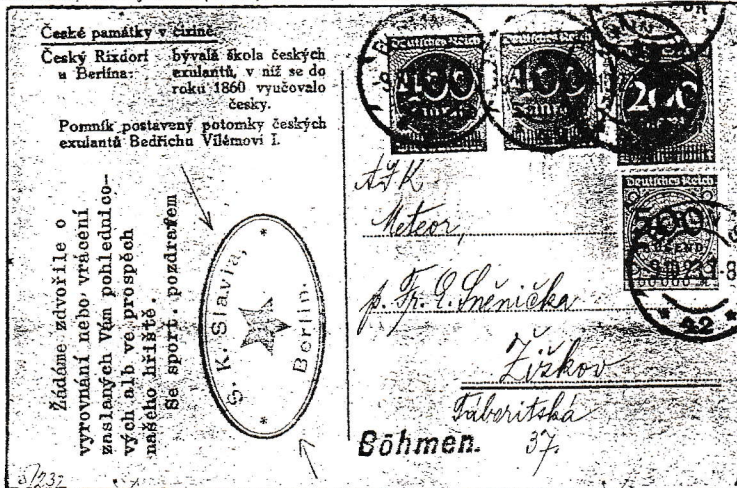 České památky v cizině.
Český Rixdorf bývalá škola českých
u Berlína: exulantů, v níž se do
roku 1860 vyučovalo
česky.
Pomník postavený potomky českých
exulantů Bedřichu Vilémovi I.
Žádáme zdvořile o
vyrovnání nebo vrácení
zaslaných Vám pohlednico-
vých alb ve prospěch
našeho hřiště.
Se sport. pozdravem
S. K. Slavia,
Berlin.
Deutsches Reich
400
Deutsches Reich
400
200
Deutsches Reich
200
TAUSEND
9.10.23.7-8
* 42 *
AFK
Meteor,
p. Fr. E. Sněnička
Žižkov
Táboritská
Böhmen. 37.